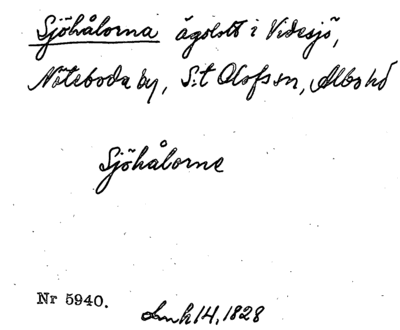 Sjöhålorna ägolott i Videsjö,
Nöteboda by, S:t Olofs sn, Albo hd
Sjöhålorne
Nr 5940.
14, 1828